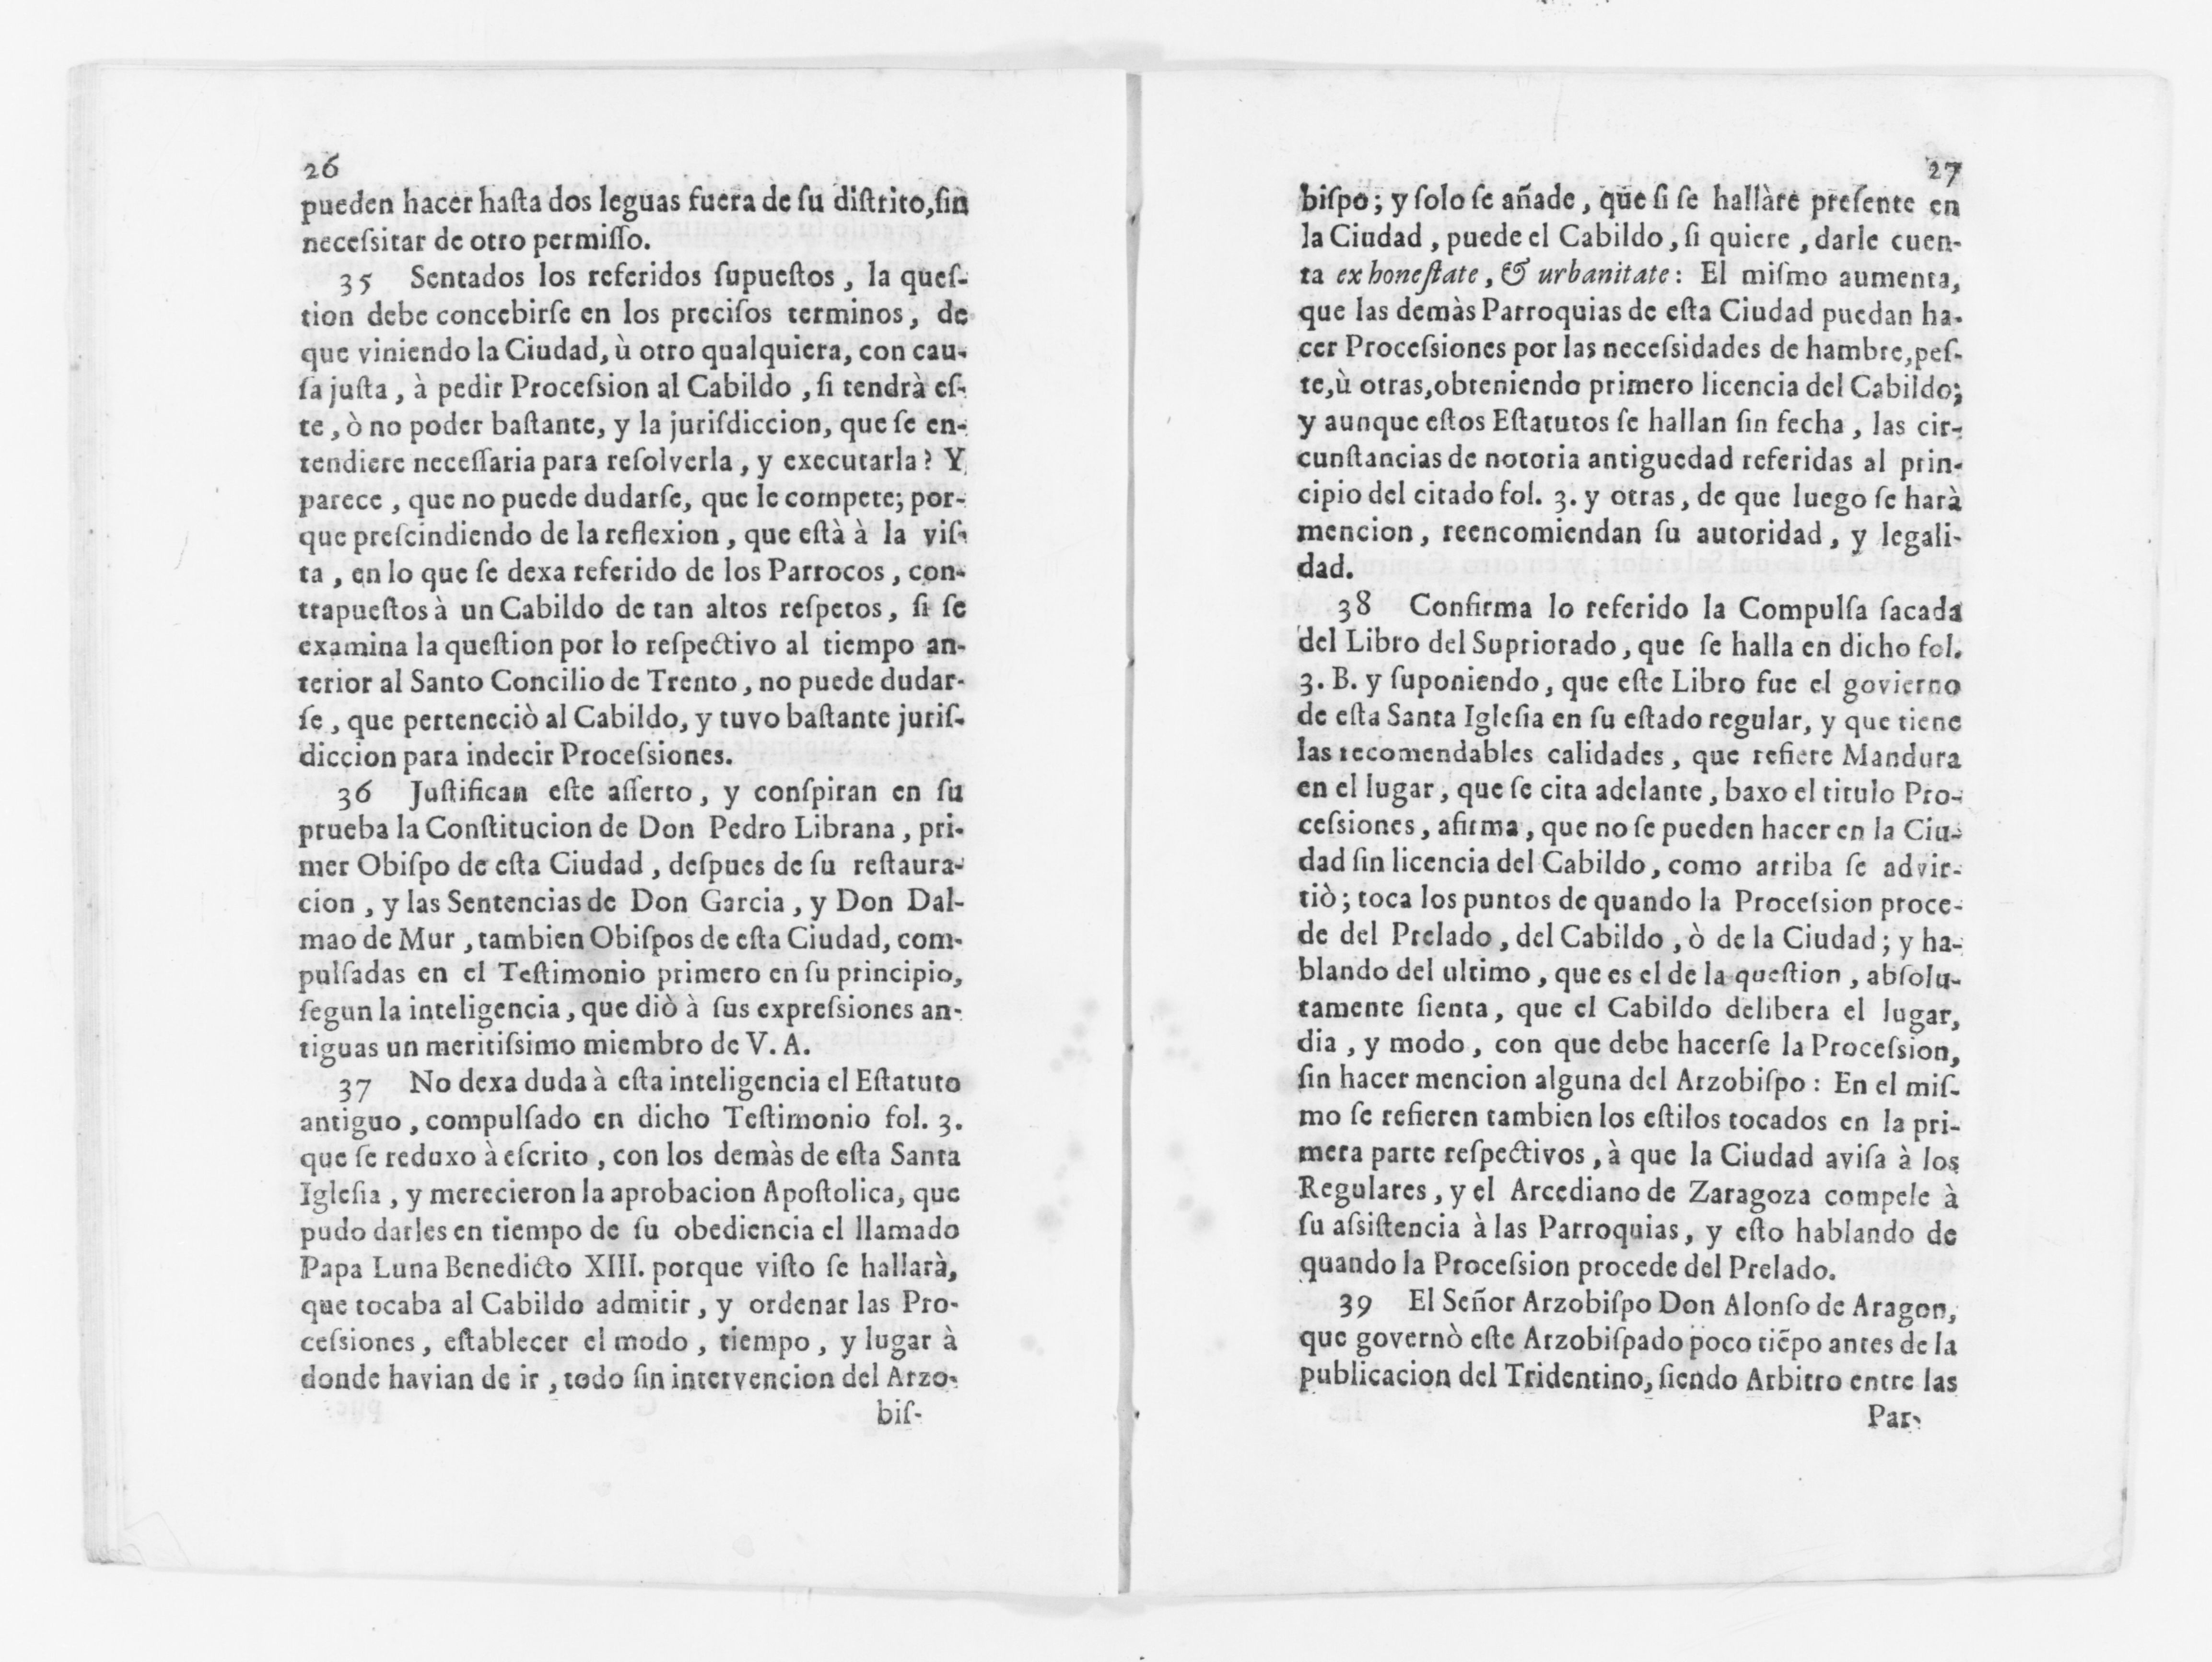 26
pueden hacer haſta dos leguas fuera de ſu diſtrito, ſin
neceſsitar de otro permiſſo.
35 Sentados los referidos ſupueſtos, la queſ-
tion debe concebirſe en los preciſos terminos, de
que viniendo la Ciudad, ù otro qualquiera, con cau-
ſa juſta, à pedir Proceſsion al Cabildo, ſi tendrà eſ-
te, ò no poder baſtante, y la juriſdiccion, que ſe en-
tendiere neceſſaria para reſolverla, y executarla? Y
parece, que no puede dudarſe, que le compete; por-
que preſcindiendo de la reflexion, que eſtà à la viſ-
ta, en lo que ſe dexa referido de los Parrocos, con-
trapueſtos à un Cabildo de tan altos reſpetos, ſi ſe
examina la queſtion por lo reſpectivo al tiempo an-
terior al Santo Concilio de Trento, no puede dudar-
ſe, que perteneciò al Cabildo, y tuvo baſtante juriſ-
diccion para indecir Proceſsiones.
36 Juſtifican eſte aſſerto, y conſpiran en ſu
prueba la Conſtitucion de Don Pedro Librana, pri-
mer Obiſpo de eſta Ciudad, deſpues de ſu reſtaura-
cion, y las Sentencias de Don Garcia, y Don Dal-
mao de Mur, tambien Obiſpos de eſta Ciudad, com-
pulſadas en el Teſtimonio primero en ſu principio,
ſegun la inteligencia, que diò à ſus expreſsiones an-
tiguas un meritiſsimo miembro de V. A.
37 No dexa duda à eſta inteligencia el Eſtatuto
antiguo, compulſado en dicho Teſtimonio fol. 3.
que ſe reduxo à eſcrito, con los demàs de eſta Santa
Igleſia, y merecieron la aprobacion Apoſtolica, que
pudo darles en tiempo de ſu obediencia el llamado
Papa Luna Benedicto XIII. porque viſto ſe hallarà,
que tocaba al Cabildo admitir, y ordenar las Pro-
ceſsiones, eſtablecer el modo, tiempo, y lugar à
donde havian de ir, todo ſin intervencion del Arzo-
biſ-
27
biſpo; y ſolo ſe añade, que ſi ſe hallàre preſente en
la Ciudad, puede el Cabildo, ſi quiere, darle cuen-
ta ex honeſtate, & urbanitate: El miſmo aumenta,
que las demàs Parroquias de eſta Ciudad puedan ha-
cer Proceſsiones por las neceſsidades de hambre, peſ-
te, ù otras, obteniendo primero licencia del Cabildo;
y aunque eſtos Eſtatutos ſe hallan ſin fecha, las cir-
cunſtancias de notoria antiguedad referidas al prin-
cipio del citado fol. 3. y otras, de que luego ſe harà
mencion, reencomiendan ſu autoridad, y legali-
dad.
38 Confirma lo referido la Compulſa ſacada
del Libro del Supriorado, que ſe halla en dicho fol.
3. B. y ſuponiendo, que eſte Libro fue el govierno
de eſta Santa Igleſia en ſu eſtado regular, y que tiene
las recomendables calidades, que refiere Mandura
en el lugar, que ſe cita adelante, baxo el titulo Pro-
ceſsiones, afirma, que no ſe pueden hacer en la Ciu-
dad ſin licencia del Cabildo, como arriba ſe advir-
tiò; toca los puntos de quando la Proceſsion proce-
de del Prelado, del Cabildo, ò de la Ciudad; y ha-
blando del ultimo, que es el de la queſtion, abſolu-
tamente ſienta, que el Cabildo delibera el lugar,
dia, y modo, con que debe hacerſe la Proceſsion,
ſin hacer mencion alguna del Arzobiſpo: En el miſ-
mo ſe refieren tambien los eſtilos tocados en la pri-
mera parte reſpectivos, à que la Ciudad aviſa à los
Regulares, y el Arcediano de Zaragoza compele à
ſu aſsiſtencia à las Parroquias, y eſto hablando de
quando la Proceſsion procede del Prelado.
39 El Señor Arzobiſpo Don Alonſo de Aragon,
que governò eſte Arzobiſpado poco tiẽpo antes de la
publicacion del Tridentino, ſiendo Arbitro entre las
Par-